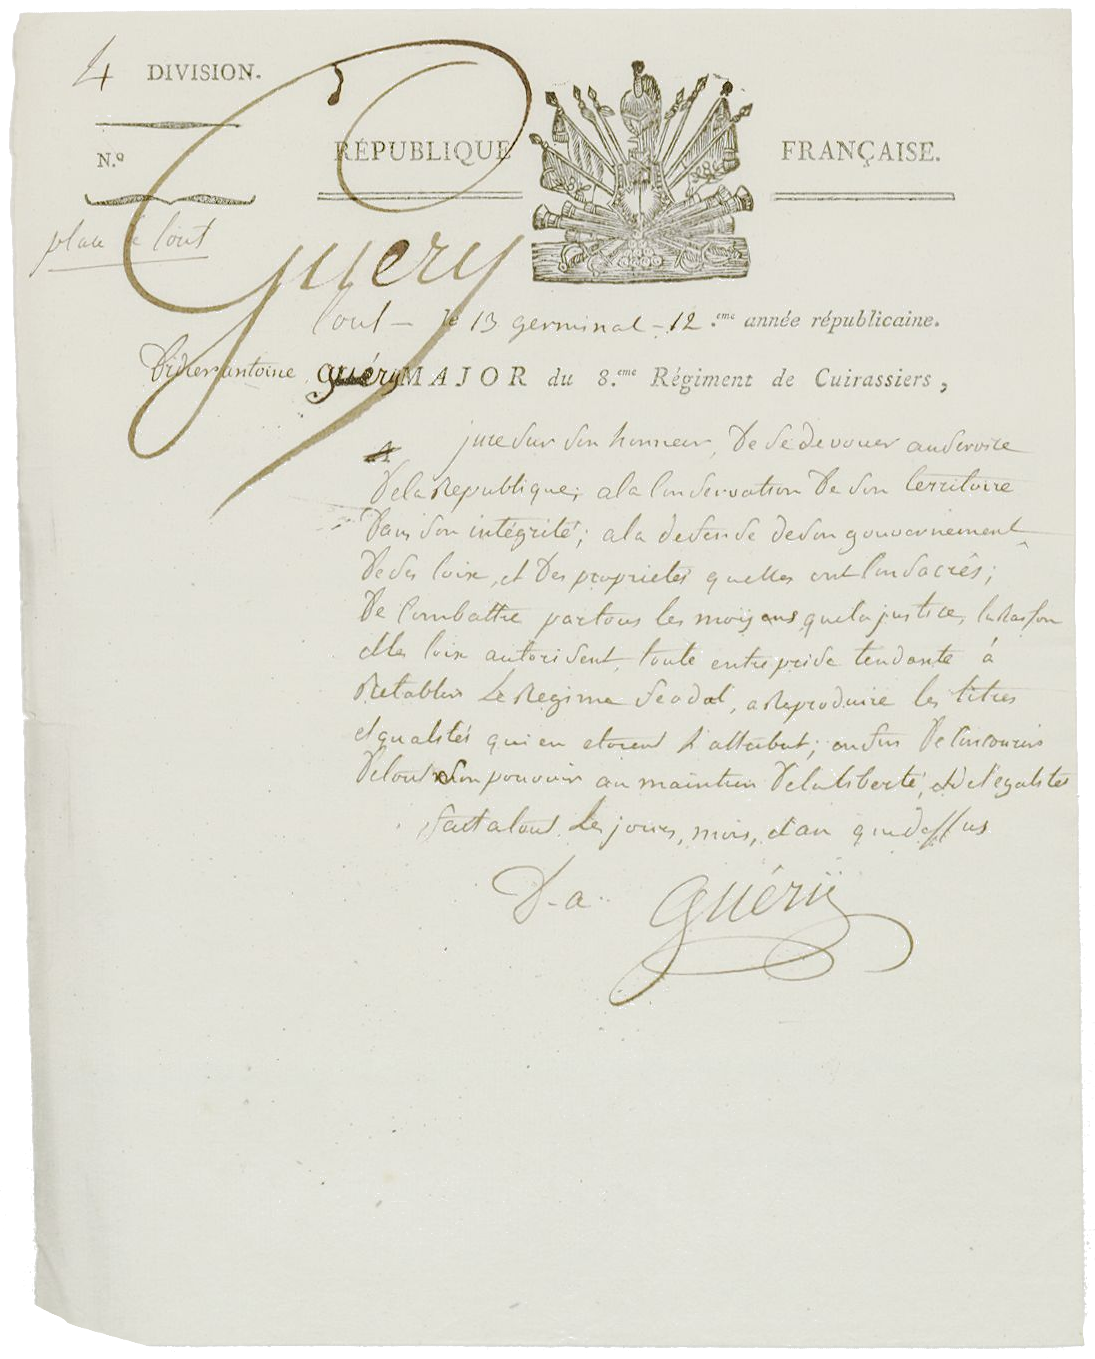 4 DIVISION.
N.º
RÉPUBLIQUE FRANÇAISE.
place de toul
Guery
toul - le 13 germinal - 12.eme année républicaine.
Didier antoine guéry MAJOR du 8.eme Régiment de Cuirassiers,
jure sur son honneur, De se devouer au service
De la Republique; a la Conservation De son territoire
Dans son intégrité; a la defense de son gouvernement
De ses loix, et Des proprietés quelles ont Consacrés;
De Combattre par tous les moiyens que la justice, la Raison
et les loix autorisent, toute entreprise tendante á
Retablir Le Regime feodal, a Reproduire les titres
et qualités qui en etoient l'attribut; enfin De Concourir
De tout son pouvoir au maintien De la liberté, et de l'egalité
fait a toul les jours, mois, et an que dessus
D. a. guérÿ